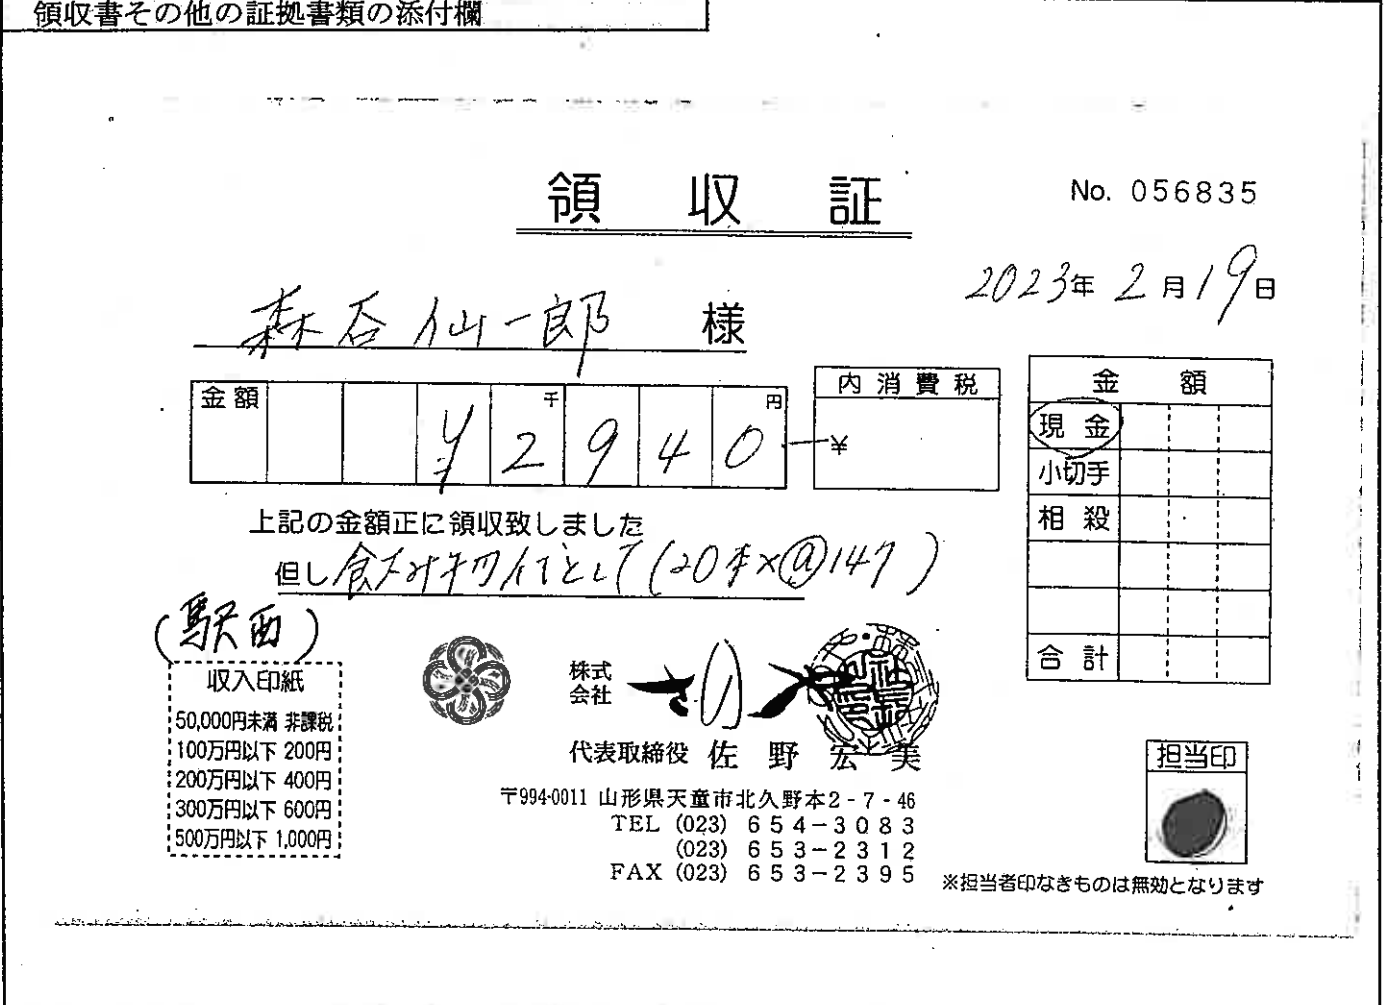 領収書その他の証拠書類の添付欄
領収証
No. 056835
2023年 2月19日
森谷仙一郎 様
金額 ¥2940
千
円
内消費税
¥
金額
現金
小切手
相殺
合計
上記の金額正に領収致しました
但し 飲み物代として(20本×@147)
(駅西)
収入印紙
50,000円未満 非課税
100万円以下 200円
200万円以下 400円
300万円以下 600円
500万円以下 1,000円
株式会社 さのや
代表取締役 佐野宏美
〒994-0011 山形県天童市北久野本2-7-46
TEL (023) 654-3083
(023) 653-2312
FAX (023) 653-2395
担当印
※担当者印なきものは無効となります